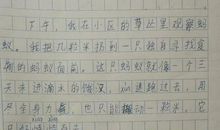 下午，我在小区的草丛里观察蚂
蚁。我把几粒米扔到一只独自寻找食
物的蚂蚁面前。这只蚂蚁就像一个三
天未进滴水的饿汉，迅速跑过去，用
尽全身力量，也只能挪动一粒米。它
xiǎng xiǎng